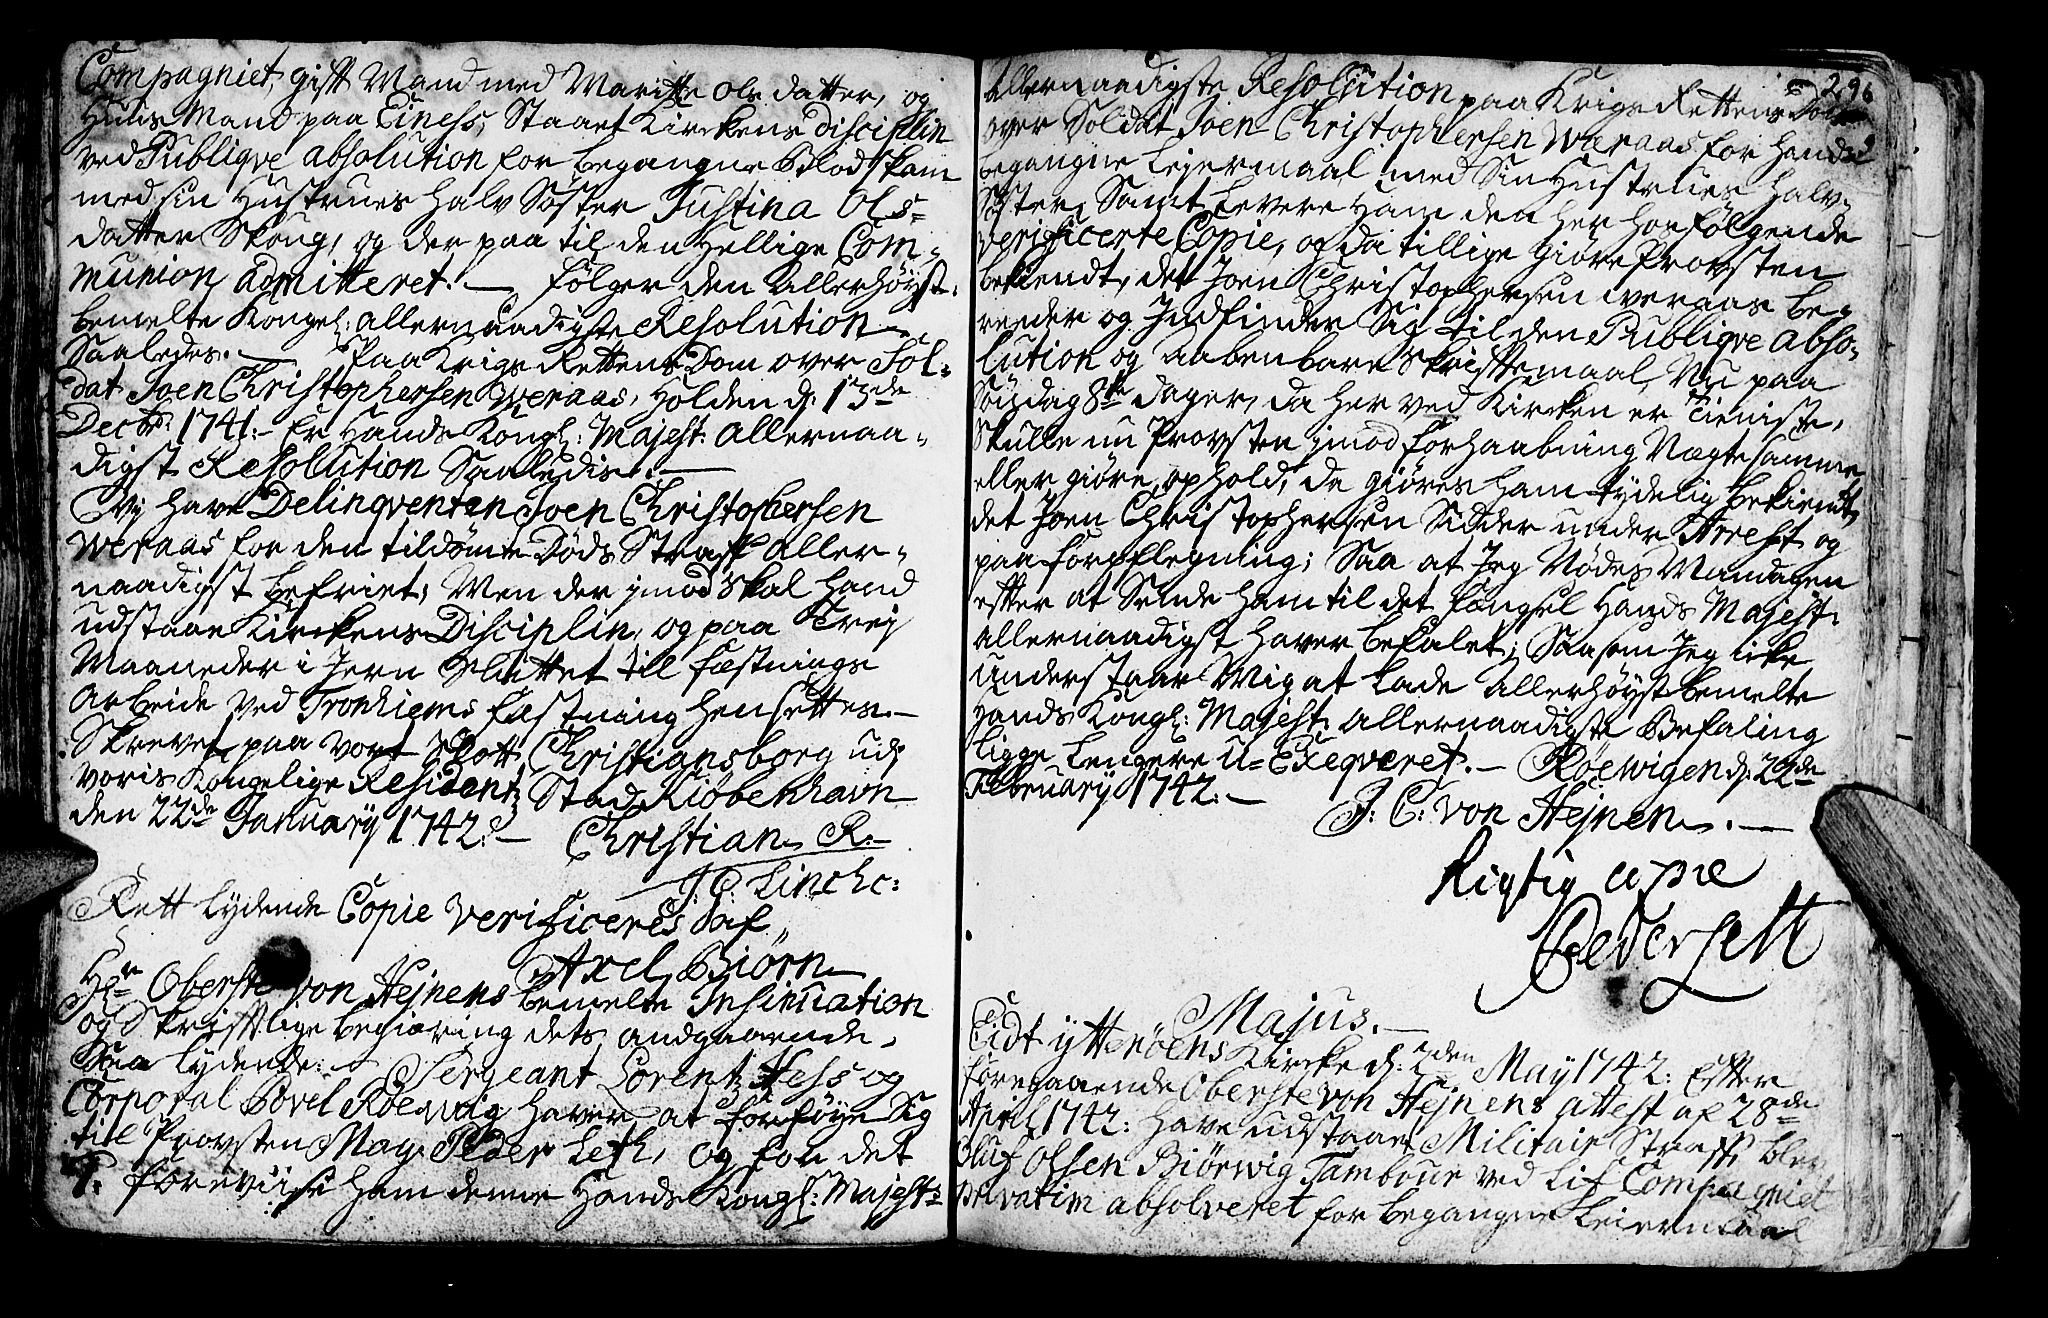 Compagniet, gift Mand med Maritte Ols datter, og
Huus Mand paa Einess, Staaet Kirckens disciplin
ved Publiqve absolution for begangne Blodskam
med sin Hustrues halv Søster Justina Ols-
datter Skoug, og der paa til den hellige Com-
munion admitteret. — følger den Allerhøyst-
bemelte Kongel: allernaadigste Resolution
Saaledes. — Paa Krigs Rettens Dom over Sol-
dat Joen Christophersen Weraas, holden d: 13de
Decbr: 1741. Er Hands Kongl: Majest: Allernaa-
digst Resolution Saaledis. —
Vy have Delinqventen Joen Christophersen
Weraas for den tildømte Døds Straff Aller-
naadigst befriet; Men der imod skal hand
udstaae Kirckens Disciplin, og paa Trej
Maaneder i Jern Sluttet til fæstnings
Arbeide ved Tronhiems fæstning hensettes. —
Skrevet paa vort Slott Christiansborg udj
voris Kongelige Residentz Stad Kiøbenhavn
den 22de January 1742. — Christian R.
J. C. Lincke:
Rett lydende Copie verificeres af
Axel Biørn
Hr Oberste von Hejnens bemelte Insinuation
og Skrifftlige begiæring dets andgaaende,
Saa lydende: Sergeant Lorentz Hess og
Corporal Povel Røewig haver at forføye Sig
til Provsten Mag. Peder Leth, og for det
1. foreviise ham denne Hands Kongl: Majests
296
Allernaadigste Resolution paa Krigs Rettens Dom
over Soldat Joen Christophersen Weraas for hands
begangne Lejermaal med Sin Hustrues halv-
Søster, Samt levere ham den her hos følgende
verificerte Copie, og da tillige giøre Provsten
bekiendt, det Joen Christophersen Weraas be-
reeder og Indfinder Sig til den Publiqve abso-
lution og aabenbare Skriftemaal, Nu paa
Søndag 8te dager, da her ved Kircken er Tieniste,
Skulle nu Provsten imod forhaabning Nægte samme
eller giøre ophold, da giøres ham tydelig bekiendt,
det Joen Christophersen Sidder under Arrest og
paa forpflegning; Saa at Jeg Nødes Mandagen
efter at Sende ham til det fængsel Hands Majest:
allernaadigst haver befalet; Saasom Jeg icke
understaar Mig at lade Allerhøystbemelte
Hands Kongl: Majest: allernaadigste Befaling
ligge lengere u-Exeqveret. — Røewigen d: 22de
February 1742. — J: C: von Hejnen. —
Rigtig copie
Pedersen
Majus. —
Eidt ytterøens Kircke d: 2den May 1742: Efter
foregaaende Oberste von Hejnens attest af 28de
April 1742: have udstaaet Militair Straff, blev
Oluf Olsen Biørwig Tambour ved Lif Compagniet
Privatim absolveret for begangne Leiermaal